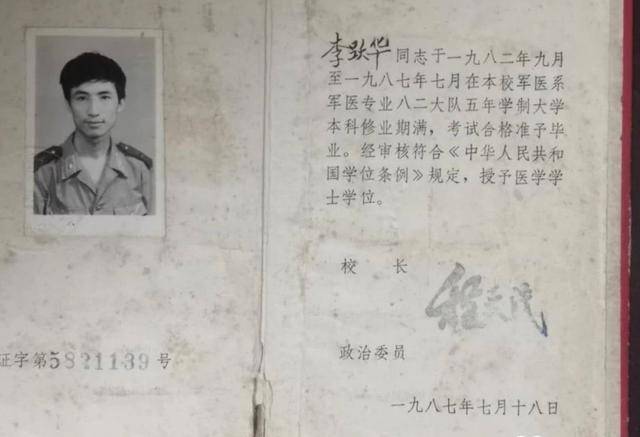 证字第5821139号
李跃华同志于一九八二年九月
至一九八七年七月在本校军医系
军医专业八二大队五年学制大学
本科修业期满，考试合格准予毕
业。经审核符合《中华人民共和
国学位条例》规定，授予医学学
士学位。
校 长
程天民
政治委员
一九八七年七月十八日